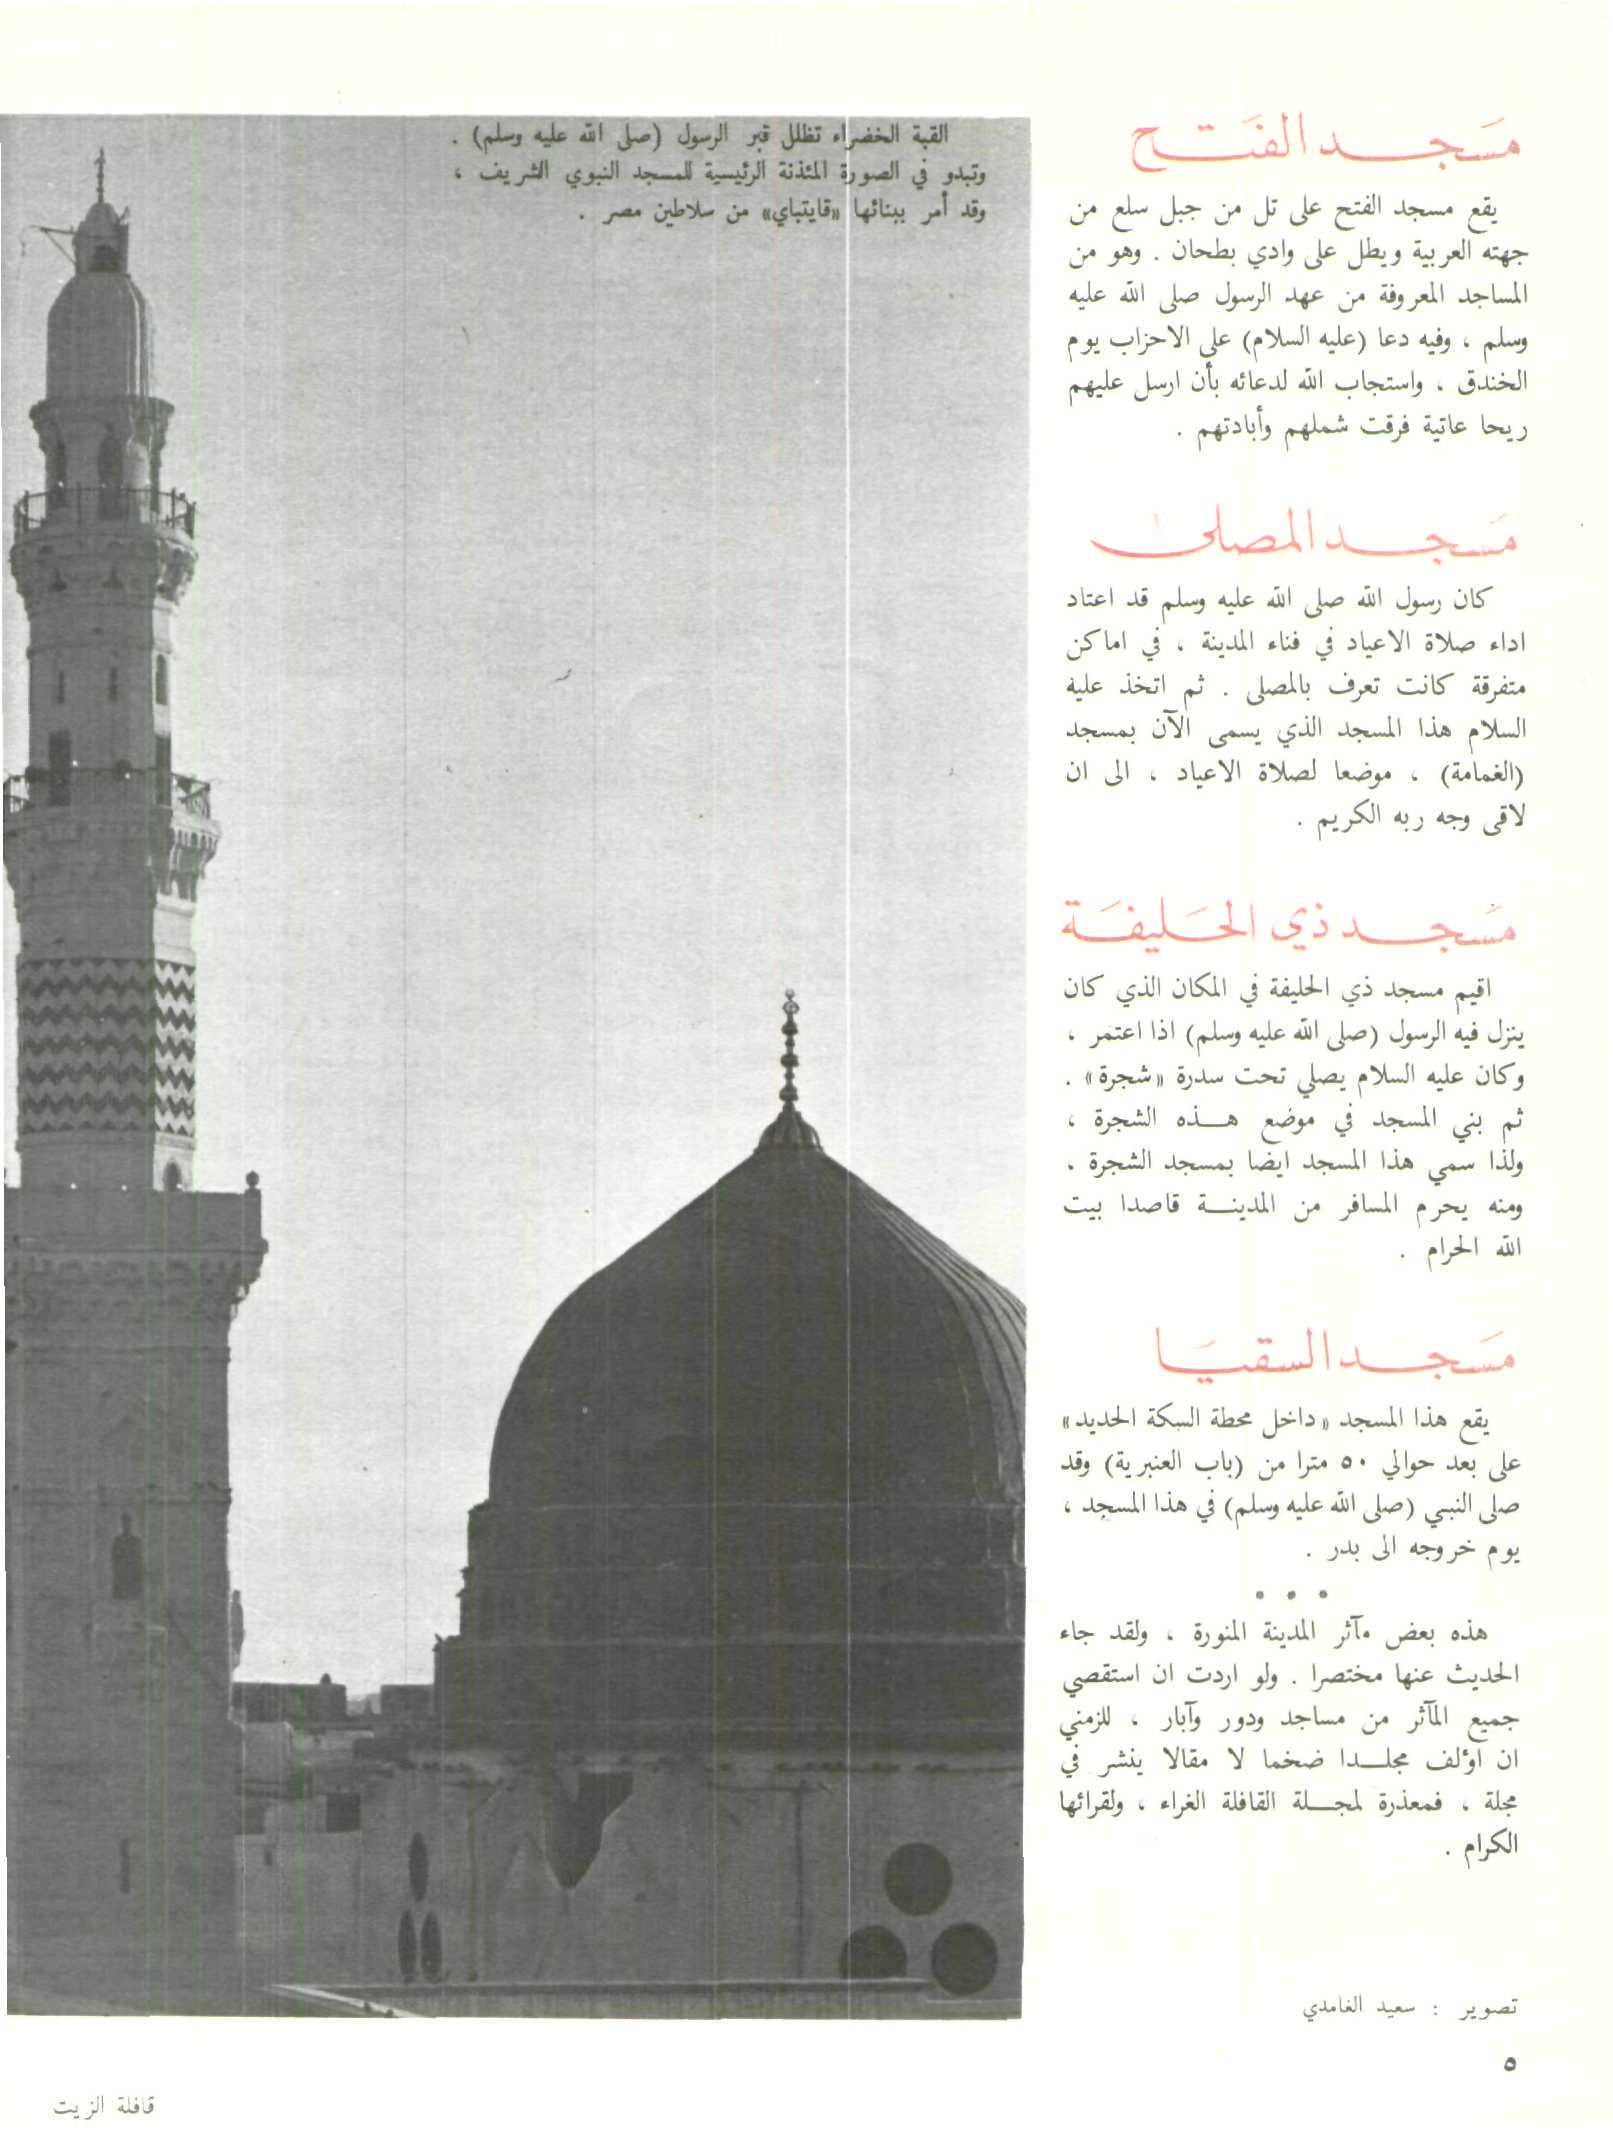 مسجد الفتح
يقع مسجد الفتح على تل من جبل سلع من
جهته العربية ويطل على وادي بطحان . وهو من
المساجد المعروفة من عهد الرسول صلى الله عليه
وسلم ، وفيه دعا (عليه السلام) على الاحزاب يوم
الخندق ، واستجاب الله لدعائه بأن ارسل عليهم
ريحا عاتية فرقت شملهم وأبادتهم .
مسجد المصلى
كان رسول الله صلى الله عليه وسلم قد اعتاد
اداء صلاة الاعياد في فناء المدينة ، في اماكن
متفرقة كانت تعرف بالمصلى . ثم اتخذ عليه
السلام هذا المسجد الذي يسمى الآن بمسجد
(الغمامة) ، موضعا لصلاة الاعياد ، الى ان
لاقى وجه ربه الكريم .
مسجد ذي الحليفة
اقيم مسجد ذي الحليفة في المكان الذي كان
ينزل فيه الرسول (صلى الله عليه وسلم) اذا اعتمر ،
وكان عليه السلام يصلي تحت سدرة «شجرة» .
ثم بني المسجد في موضع هذه الشجرة ،
ولذا سمي هذا المسجد ايضا بمسجد الشجرة .
ومنه يحرم المسافر من المدينة قاصدا بيت
الله الحرام .
مسجد السقيا
يقع هذا المسجد «داخل محطة السكة الحديد»
على بعد حوالي ٥٠ مترا من (باب العنبرية) وقد
صلى النبي (صلى الله عليه وسلم) في هذا المسجد ،
يوم خروجه الى بدر .
• • •
هذه بعض مآثر المدينة المنورة ، ولقد جاء
الحديث عنها مختصرا . ولو اردت ان استقصي
جميع المآثر من مساجد ودور وآبار ، للزمني
ان اؤلف مجلدا ضخما لا مقالا ينشر في
مجلة ، فمعذرة لمجلة القافلة الغراء ، ولقرائها
الكرام .
تصوير : سعيد الغامدي
القبة الخضراء تظلل قبر الرسول (صلى الله عليه وسلم) .
وتبدو في الصورة المئذنة الرئيسية للمسجد النبوي الشريف ،
وقد أمر ببنائها «قايتباي» من سلاطين مصر .
٥
قافلة الزيت